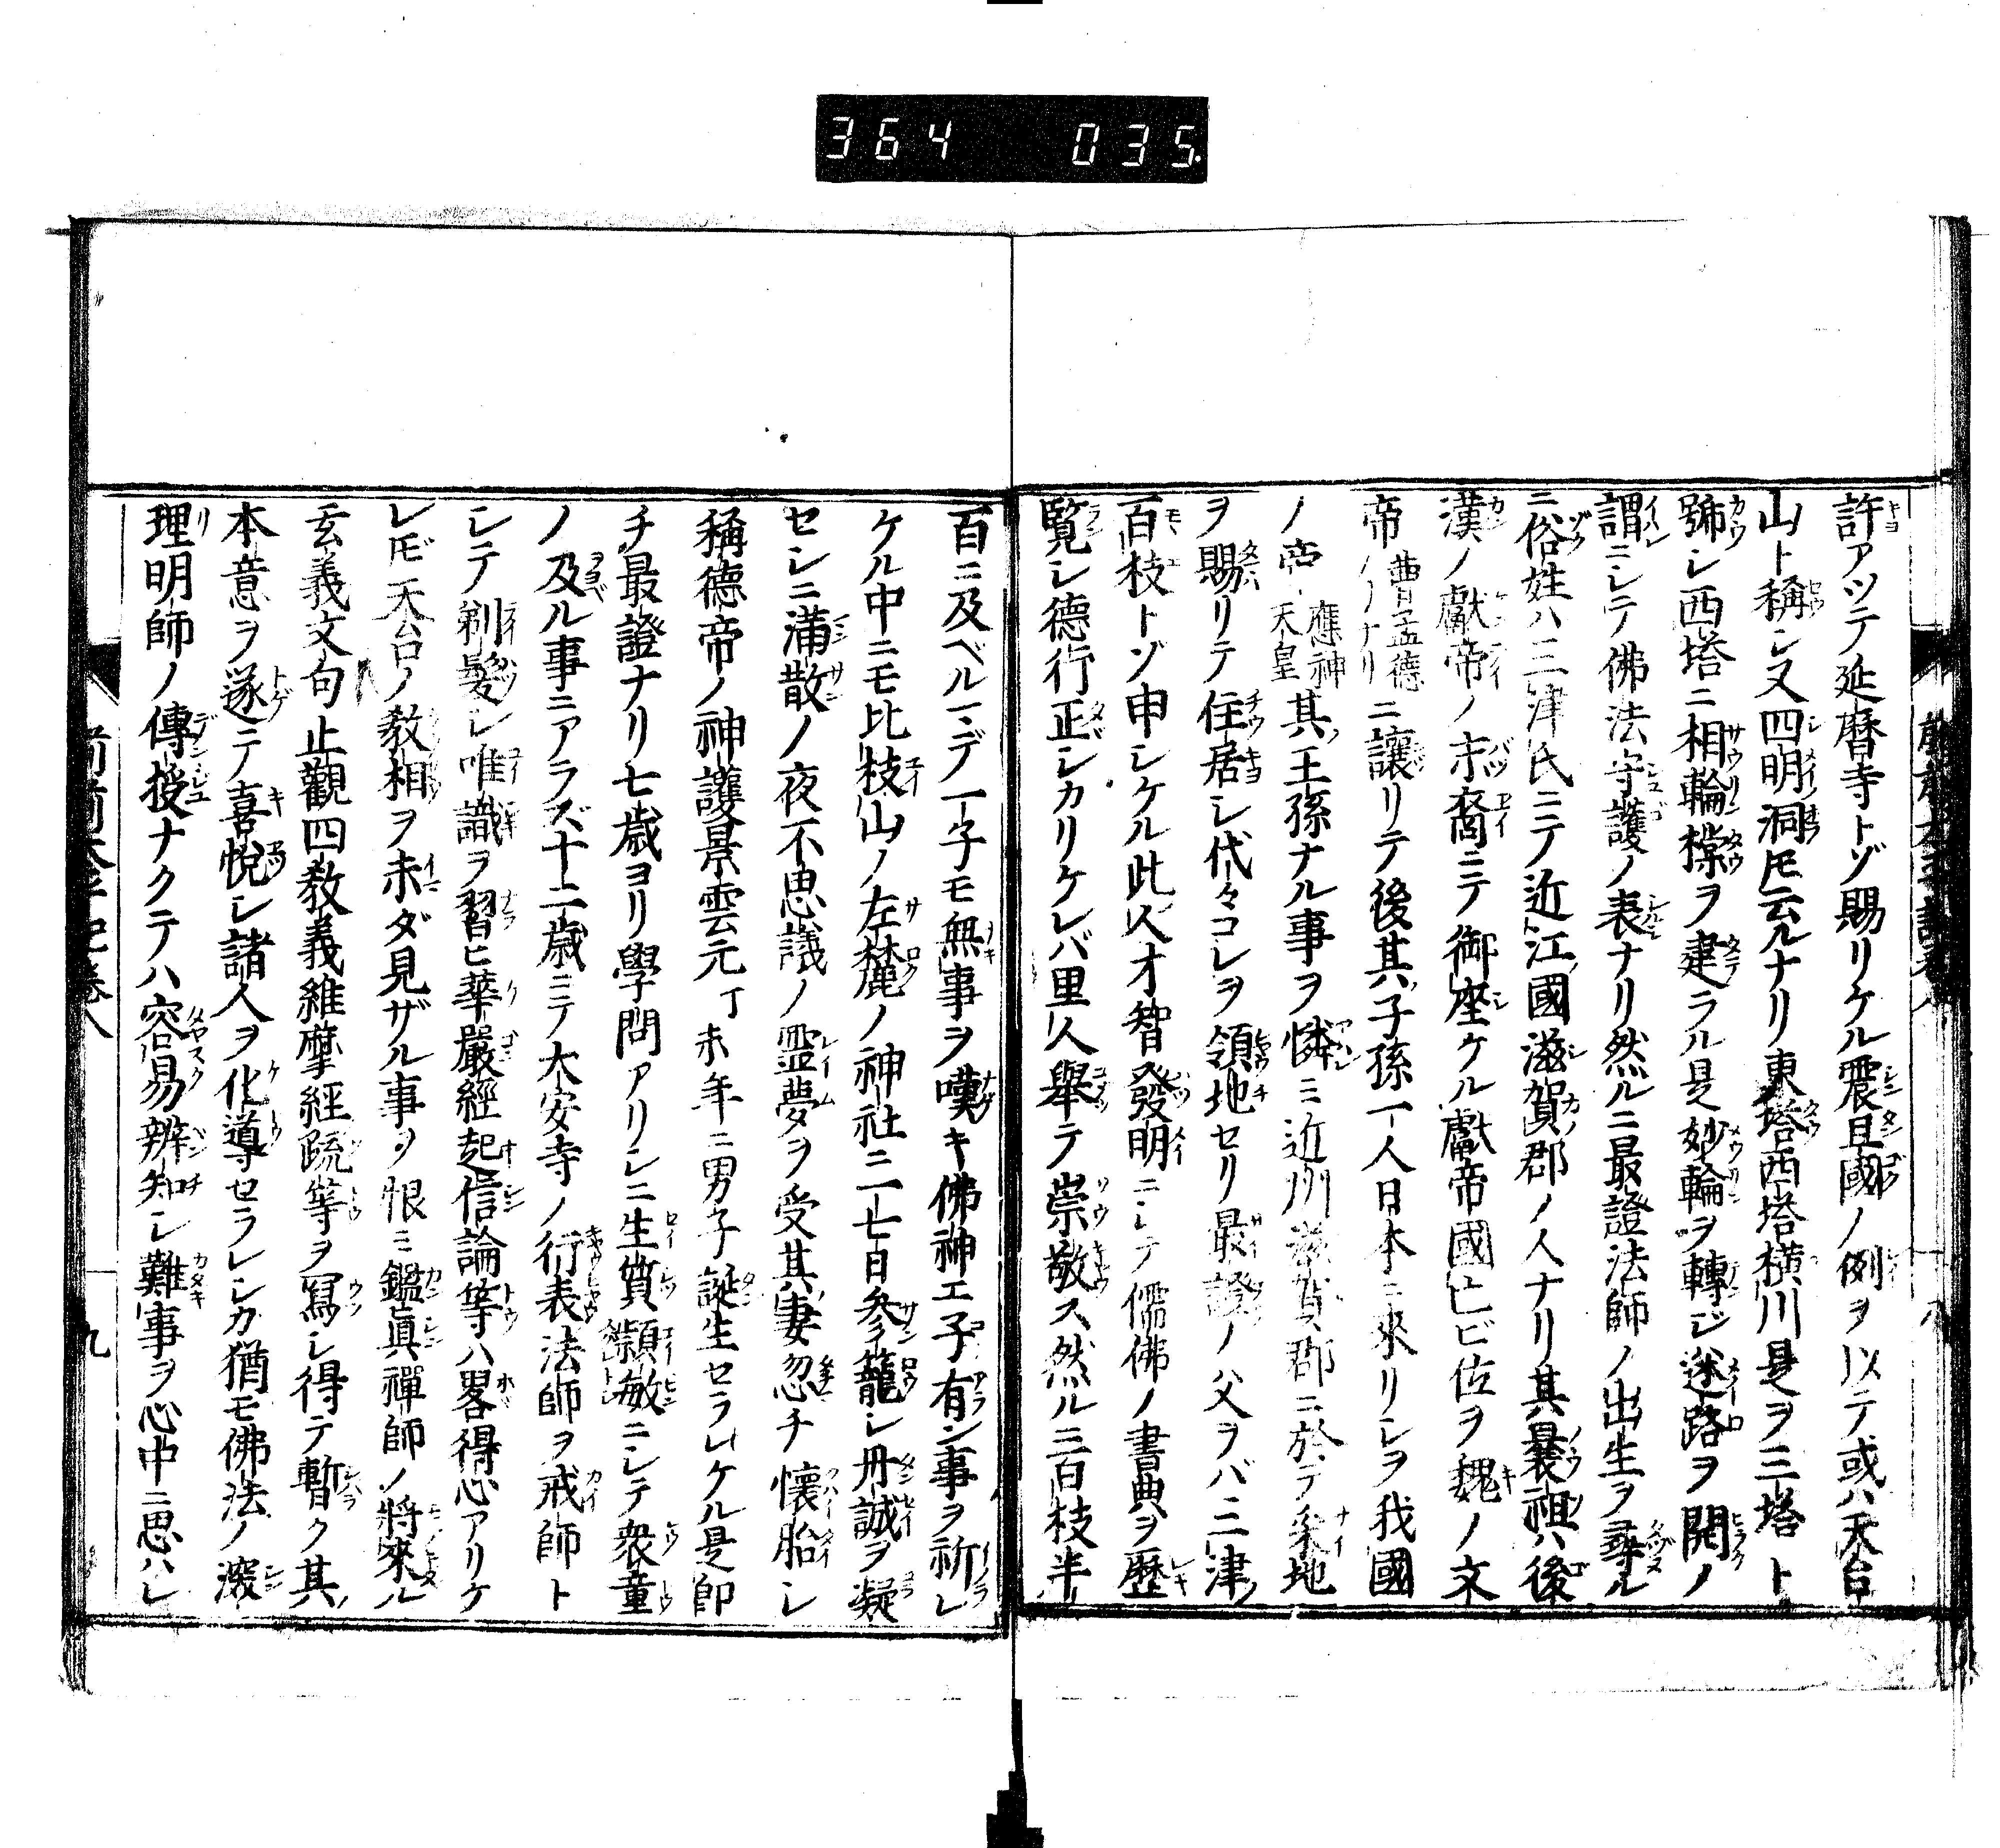 364 035
許アツテ延暦寺トゾ賜リケル震旦國ノ例ヲ以テ或ハ天台
山ト稱シ又四明洞𪜈云ルナリ東塔西塔横川是ヲ三塔ト
號シ西塔ニ相輪橖ヲ建ラル是妙輪ヲ轉ジ迷路ヲ開ノ
謂ニシテ佛法守護ノ表ナリ然ルニ最證法師ノ出生ヲ尋ル
ニ俗姓ハ三津氏ニテ近江國滋賀郡ノ人ナリ其曩祖ハ後
漢ノ獻帝ノ末裔ニテ御座ケル獻帝國亡ビ位ヲ魏ノ文
帝曹孟德ノ子ナリニ讓リテ後其子孫一人日本ニ來リシヲ我國
ノ帝應神天皇其王孫ナル事ヲ憐ミ近州滋賀郡ニ於テ采地
ヲ賜リテ住居シ代々コレヲ領地セリ最證ノ父ヲバ三津
百枝トゾ申シケル此人才智發明ニシテ儒佛ノ書典ヲ歴
覽シ德行正シカリケレバ里人舉テ崇敬ス然ルニ百枝半
百ニ及ベルマデ一子モ無事ヲ嘆キ佛神エ子有ン事ヲ祈レ
ケル中ニモ比枝山ノ左麓ノ神社ニ一七日參籠シ丹誠ヲ凝
セシニ滿散ノ夜不思議ノ靈夢ヲ受其妻忽チ懷胎シ
稱德帝ノ神護景雲元丁未年ニ男子誕生セラレケル是即
チ最證ナリ七歲ヨリ學問アリシニ生質頴敏ニシテ衆童
ノ及ル事ニアラズ十二歲ニテ大安寺ノ行表法師ヲ戒師ト
シテ剃髮シ唯識ヲ習ヒ華嚴經起信論等ハ畧得心アリケ
レ𪜈天台ノ敎相ヲ未ダ見ザル事ヲ恨ミ鑑眞禪師ノ將來ル
玄義文句止觀四敎義維摩經疏等ヲ寫シ得テ暫ク其
本意ヲ遂テ喜悅シ諸人ヲ化導セラレシカ猶モ佛法ノ深
理明師ノ傳授ナクテハ容易辨知シ難事ヲ心中ニ思ハレ
九